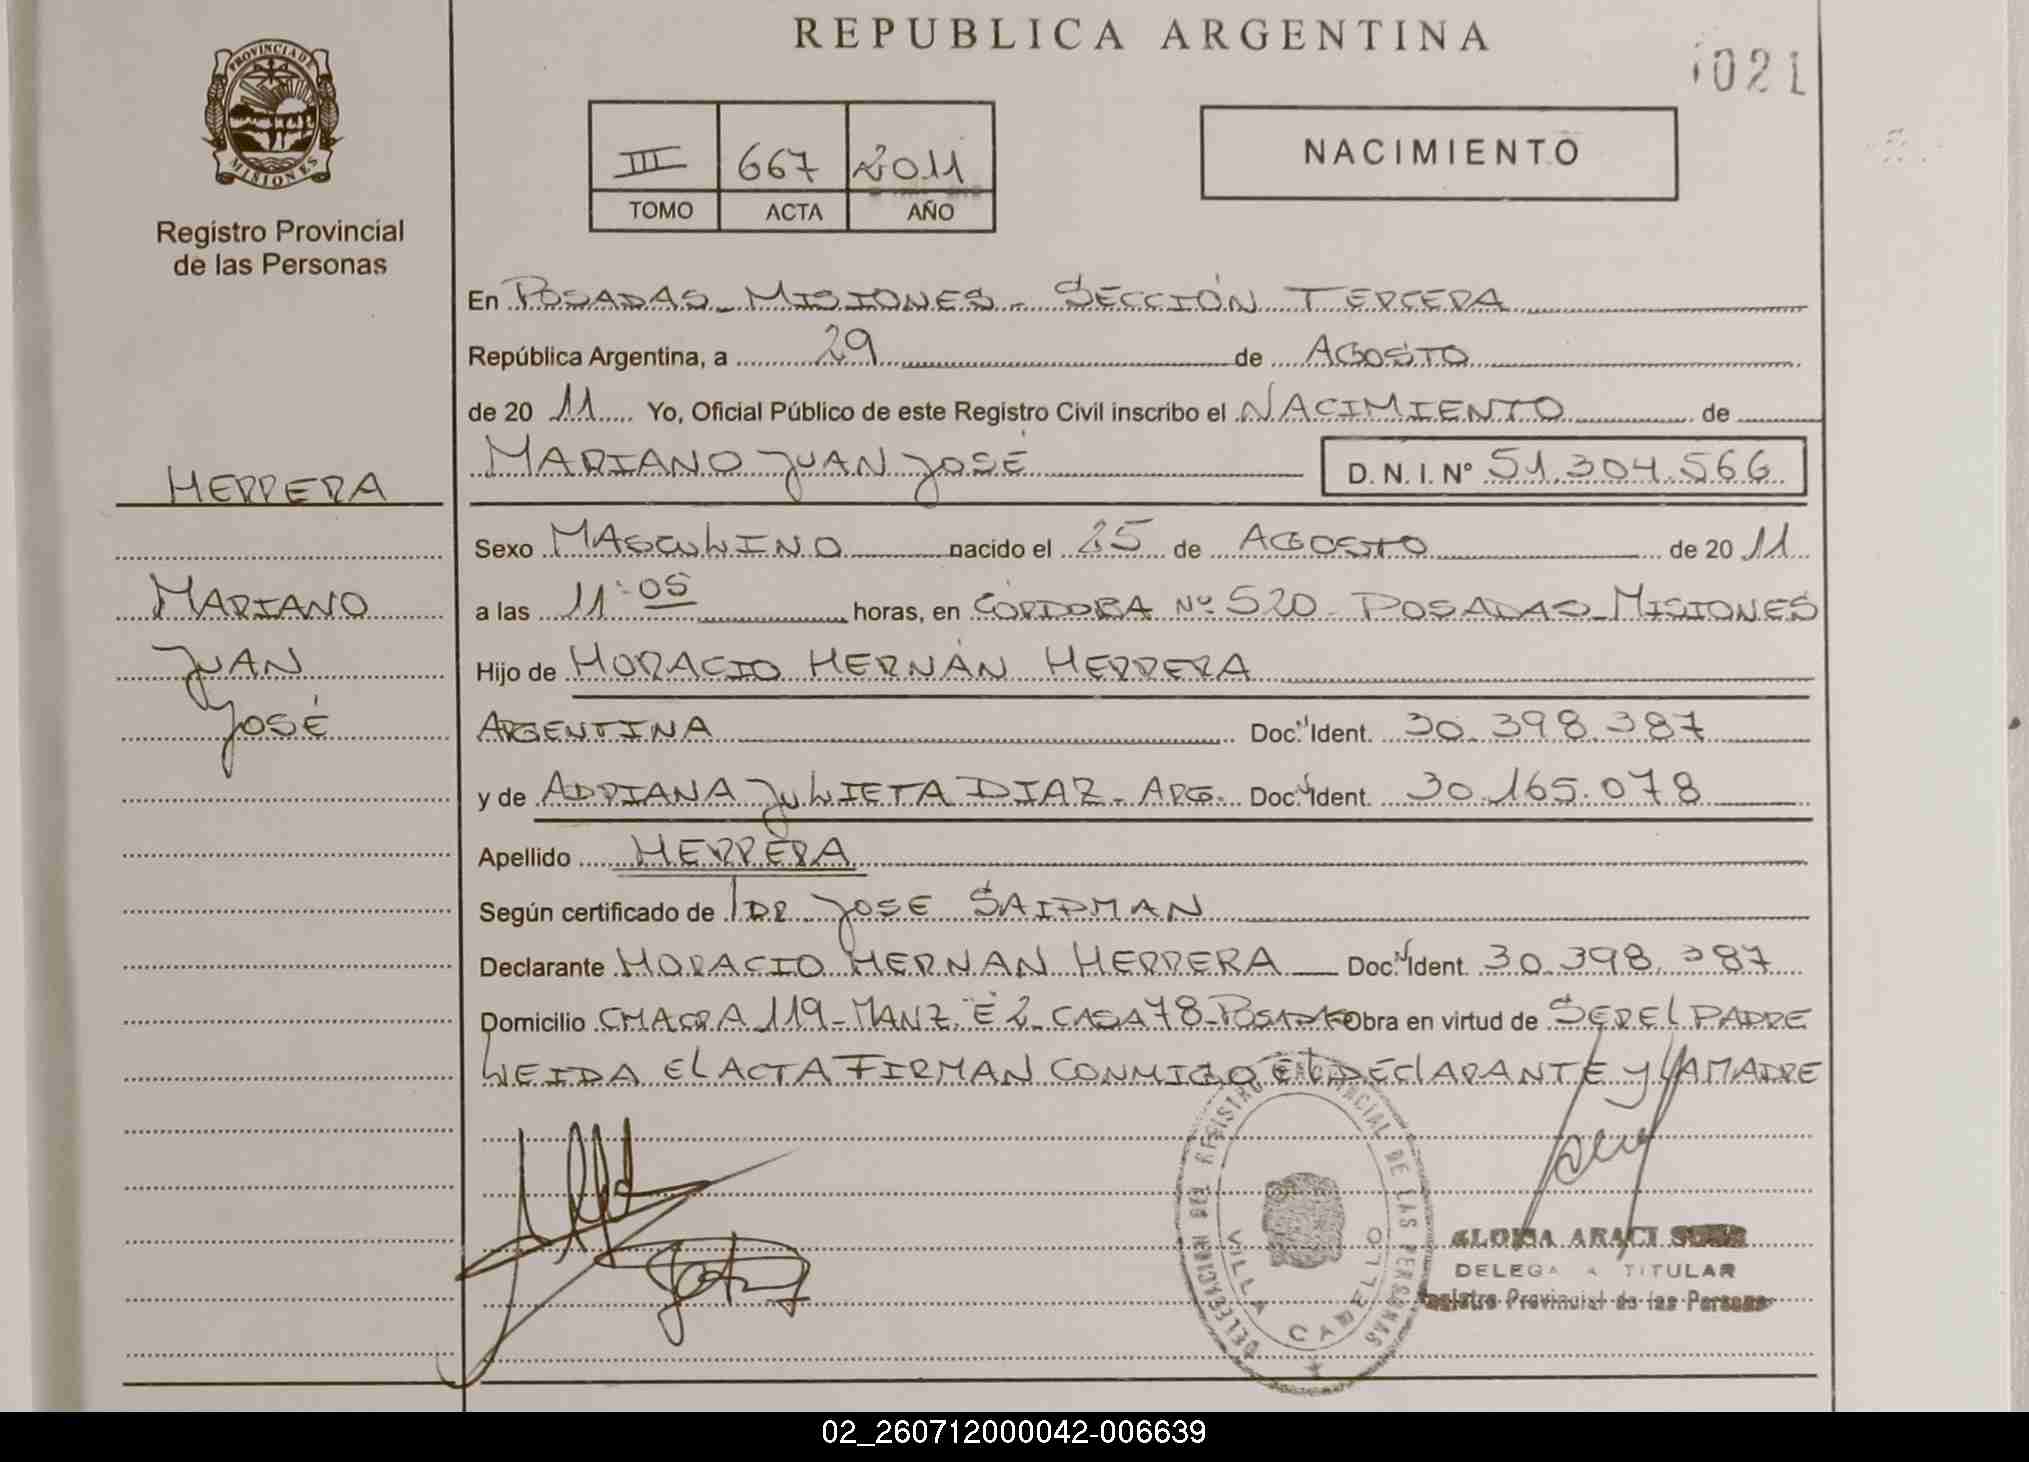 REPUBLICA ARGENTINA
021
PROVINCIA DE
MISIONES
Registro Provincial
de las Personas
III 667 2011
TOMO ACTA AÑO
NACIMIENTO
En POSADAS - MISIONES - SECCIÓN TERCERA
República Argentina, a 29 de AGOSTO
de 20 11 Yo, Oficial Público de este Registro Civil inscribo el NACIMIENTO de
MARIANO JUAN JOSÉ D. N. I. Nº 51.304.566
HERRERA
MARIANO
JUAN
JOSÉ
Sexo MASCULINO nacido el 25 de AGOSTO de 20 11
a las 11:05 horas, en CÓRDOBA Nº 520 - POSADAS - MISIONES
Hijo de HORACIO HERNÁN HERRERA
ARGENTINA Doc. Ident. 30.398.387
y de ADRIANA JULIETA DIAZ - ARG. Doc. Ident. 30.165.078
Apellido HERRERA
Según certificado de DR JOSE SAIDMAN
Declarante HORACIO HERNAN HERRERA Doc. Ident. 30.398.387
Domicilio CHACRA 119 - MANZ. E 2 - CASA 78 - POSADAS Obra en virtud de SER EL PADRE
LEIDA EL ACTA FIRMAN CONMIGO EL DECLARANTE Y LA MADRE
DELEGACION DEL REGISTRO PROVINCIAL DE LAS PERSONAS
VILLA CABELLO
GLORIA ARACI
DELEGADA TITULAR
Registro Provincial de las Personas
02_260712000042-006639